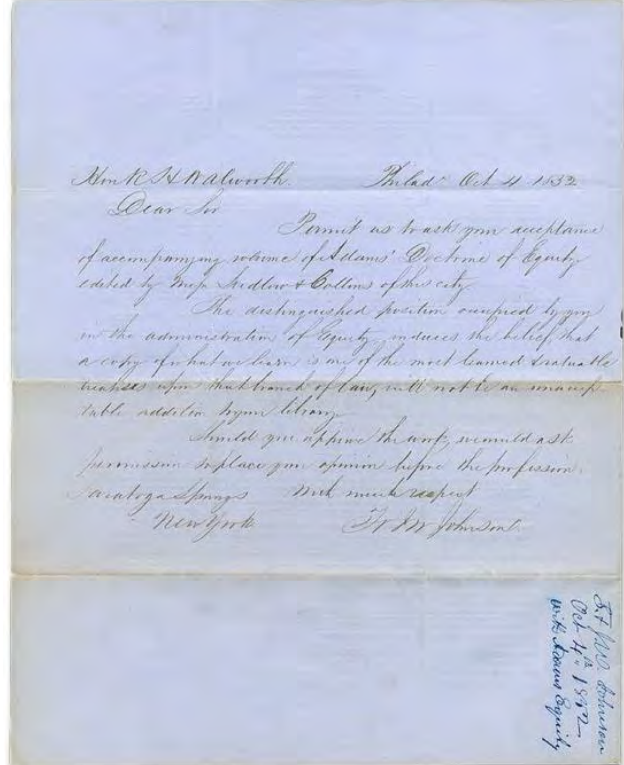 Hon R H Walworth. Philada Oct 4 1852
Dear Sir
Permit us to ask your acceptance
of accompanying volume of Adams' Doctrine of Equity
edited by Messrs Ludlow & Collins of this city
The distinguished position occupied by you
in the administration of Equity, induces the belief, that
a copy of what we learn is one of the most learned & valuable
treatises upon that branch of law, will not be an unaccep
table addition to your library
Should you approve the work, we would ask
permission to place your opinion before the profession.
Saratoga Springs With much respect
New York T & J W Johnson
T & J W Johnson
Oct 4th 1852
with Adams Equity